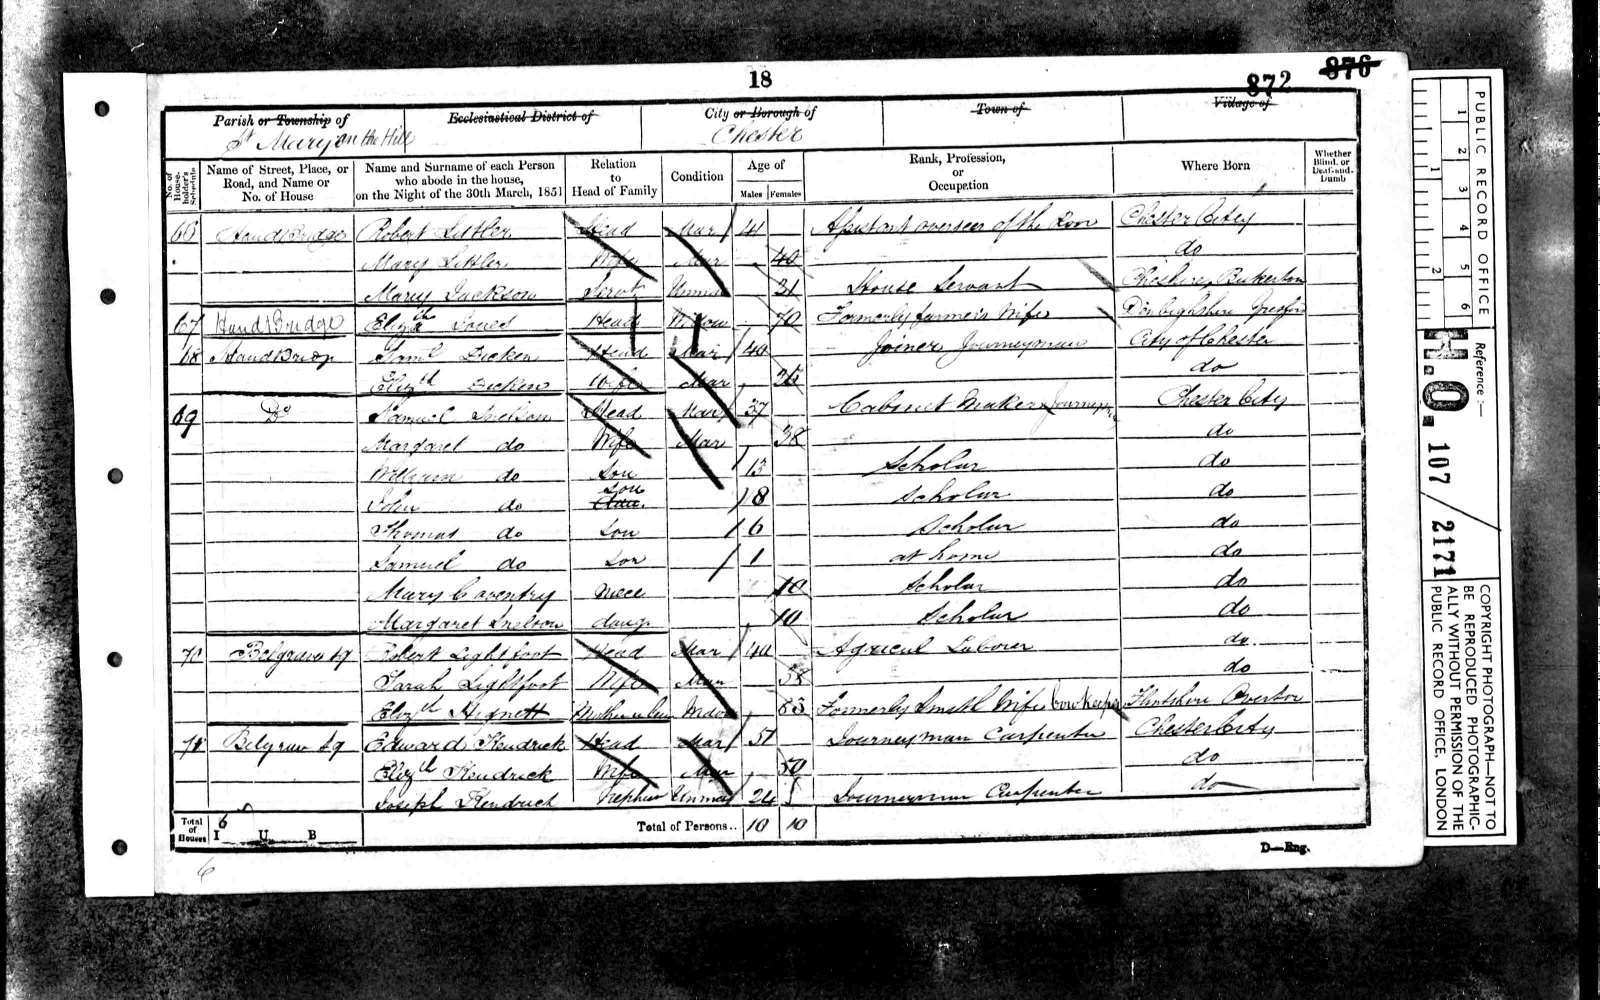 18
872
876
Parish or Township of
Ecclesiastical District of
City or Borough of
Town of
Village of
St Mary on the Hill
Chester
No. of House-holder's Schedule
Name of Street, Place, or Road, and Name or No. of House
Name and Surname of each Person who abode in the house, on the Night of the 30th March, 1851
Relation to Head of Family
Condition
Age of
Males Females
Rank, Profession, or Occupation
Where Born
Whether Blind, or Deaf-and-Dumb
66 Handbridge Robert Littler Head Mar 41 Assistant overseer of the Poor Chester City
Mary Littler Wife Mar 40 do
Mary Jackson Servt Unmar 21 House Servant Cheshire Bickerton
67 Handbridge Elizth Jones Head Widow 70 Formerly farmers Wife Denbighshire Gresford
68 Handbridge Saml Dicken Head Mar 40 Joiner Journeyman City of Chester
Elizth Dicken Wife Mar 36 do
69 Do Samuel Snelson Head Mar 37 Cabinet Maker Journeyman Chester City
Margaret do Wife Mar 38 do
William do Son 13 Scholar do
John do Son 8 Scholar do
Thomas do Son 6 Scholar do
Samuel do Son 1 at home do
Mary Coventry Niece 10 Scholar do
Margaret Snelson daug 10 Scholar do
70 Belgrave Sq Robert Lightfoot Head Mar 40 Agricul Laborer do
Sarah Lightfoot Wife Mar 38 do
Elizth Hignett Mother in Law Widow 83 Formerly Smith Wife Cow Keeper Flintshire Overton
71 Belgrave Sq Edward Kendrick Head Mar 51 Journeyman Carpenter Chester City
Elizth Kendrick Wife Mar 50 do
Joseph Kendrick Nephew Unmar 24 Journeyman Carpenter do
Total of Houses I 6 U B Total of Persons.. 10 10
D—Eng.
6
PUBLIC RECORD OFFICE
1 2 3 4 5 6
1 2
Reference:—
H.O. 107/2171
COPYRIGHT PHOTOGRAPH—NOT TO
BE REPRODUCED PHOTOGRAPHIC-
ALLY WITHOUT PERMISSION OF THE
PUBLIC RECORD OFFICE, LONDON